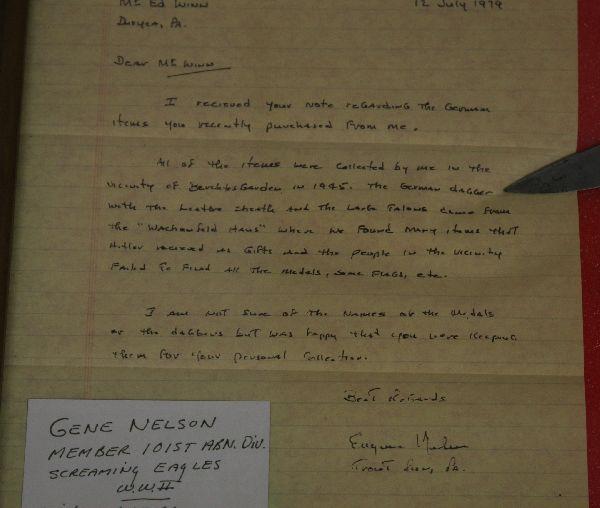 Mr Ed Winn
12 July 1979
Duryea, Pa.
Dear Mr Winn
I recieved your note regarding the German
items you recently purchased from me.
All of the items were collected by me in the
vicinity of in 1945. The German dagger
with the leather sheath and the large came from
the "Wachenfeld Haus" where we found many items that
Hitler recieved as gifts and the people in the vicinity
failed to find all the medals, some flags, etc.
I am not sure of the names of the medals
or the but was happy that you were keeping
them for your personal collection.
Best Regards
Eugene Nelson
Pa.
GENE NELSON
MEMBER 101ST ABN. DIV.
SCREAMING EAGLES
W.W.II